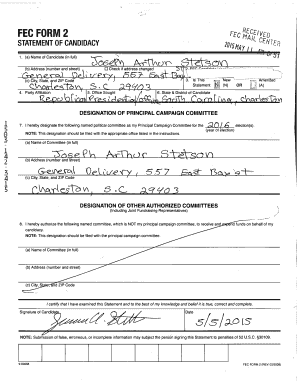 FEC FORM 2
STATEMENT OF CANDIDACY
RECEIVED
FEC MAIL CENTER
1. (a) Name of Candidate (in full)
Joseph Arthur Stetson
(b) Address (number and street) Check if address changed
General Delivery, 557 East Bay
(c) City, State, and ZIP Code
Charleston, S.C 29403
3. Is This Statement New (N) OR Amended (A)
4. Party Affiliation 5. Office Sought 6. State & District of Candidate
Republican President/office South Carolina, Charleston
DESIGNATION OF PRINCIPAL CAMPAIGN COMMITTEE
7. I hereby designate the following named political committee as my Principal Campaign Committee for the 2016 election(s).
(year of election)
NOTE: This designation should be filed with the appropriate office listed in the instructions.
(a) Name of Committee (in full)
Joseph Arthur Stetson
(b) Address (number and street)
General Delivery, 557 East Bay st
(c) City, State, and ZIP Code
Charleston, S.C 29403
DESIGNATION OF OTHER AUTHORIZED COMMITTEES
(Including Joint Fundraising Representatives)
8. I hereby authorize the following named committee, which is NOT my principal campaign committee, to receive and expend funds on behalf of my candidacy.
NOTE: This designation should be filed with the principal campaign committee.
(a) Name of Committee (in full)
(b) Address (number and street)
(c) City, State, and ZIP Code
I certify that I have examined this Statement and to the best of my knowledge and belief it is true, correct and complete.
Signature of Candidate Date
5/5/2015
NOTE: Submission of false, erroneous, or incomplete information may subject the person signing this Statement to penalties of 52 U.S.C. §30109.